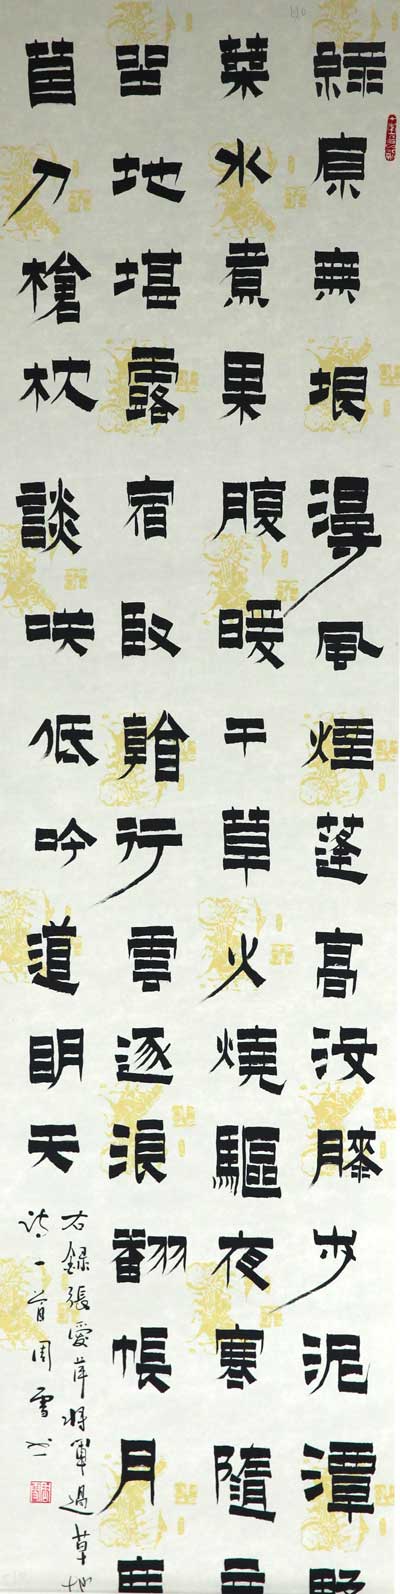 綠原無垠漫風煙蓬高沒膝步泥潭野
菜水煮果腹暖干草火燒驅夜寒隨
坐地堪露宿臥看行雲逐浪翻帳月席
茵刀槍枕談笑低吟道明天
右錄張愛萍將軍過草地
詩一首周雪